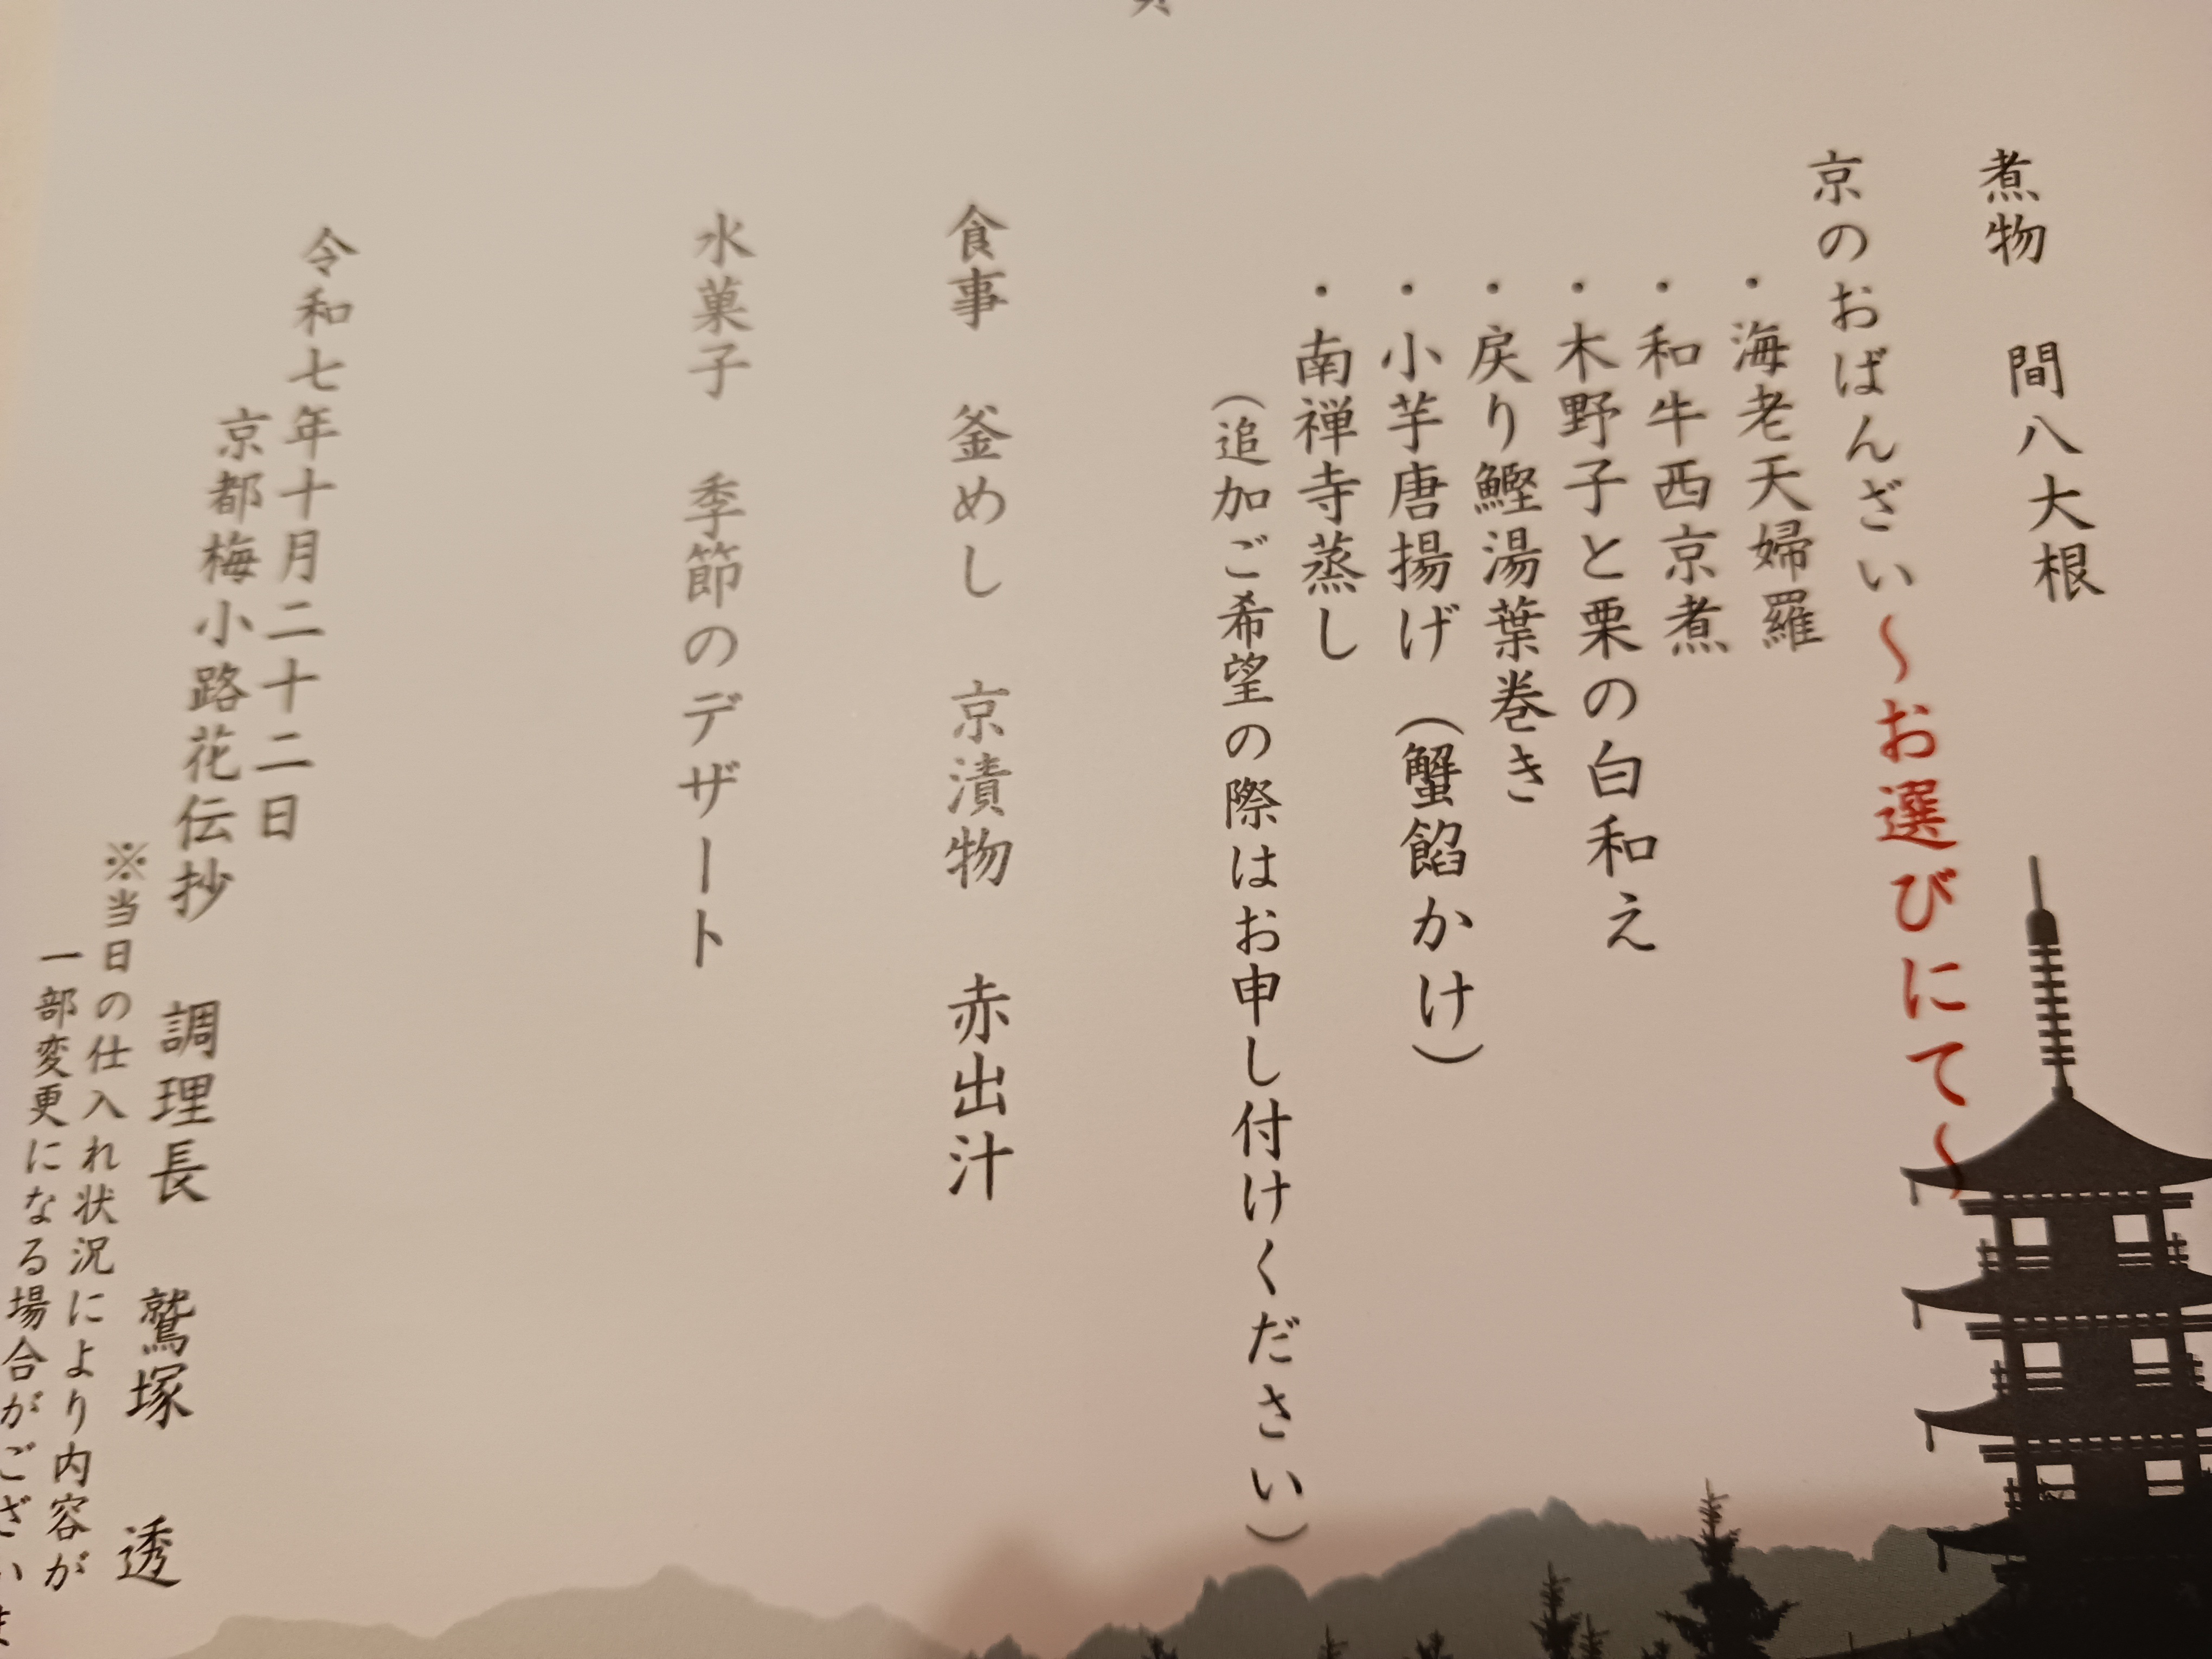 煮物　間八大根
京のおばんざい～お選びにて～
・海老天婦羅
・和牛西京煮
・木野子と栗の白和え
・戻り鰹湯葉巻き
・小芋唐揚げ（蟹餡かけ）
・南禅寺蒸し
（追加ご希望の際はお申し付けください）
食事　釜めし　京漬物　赤出汁
水菓子　季節のデザート
令和七年十月二十二日
京都梅小路花伝抄　調理長　鷲塚　透
※当日の仕入れ状況により内容が
一部変更になる場合がございま